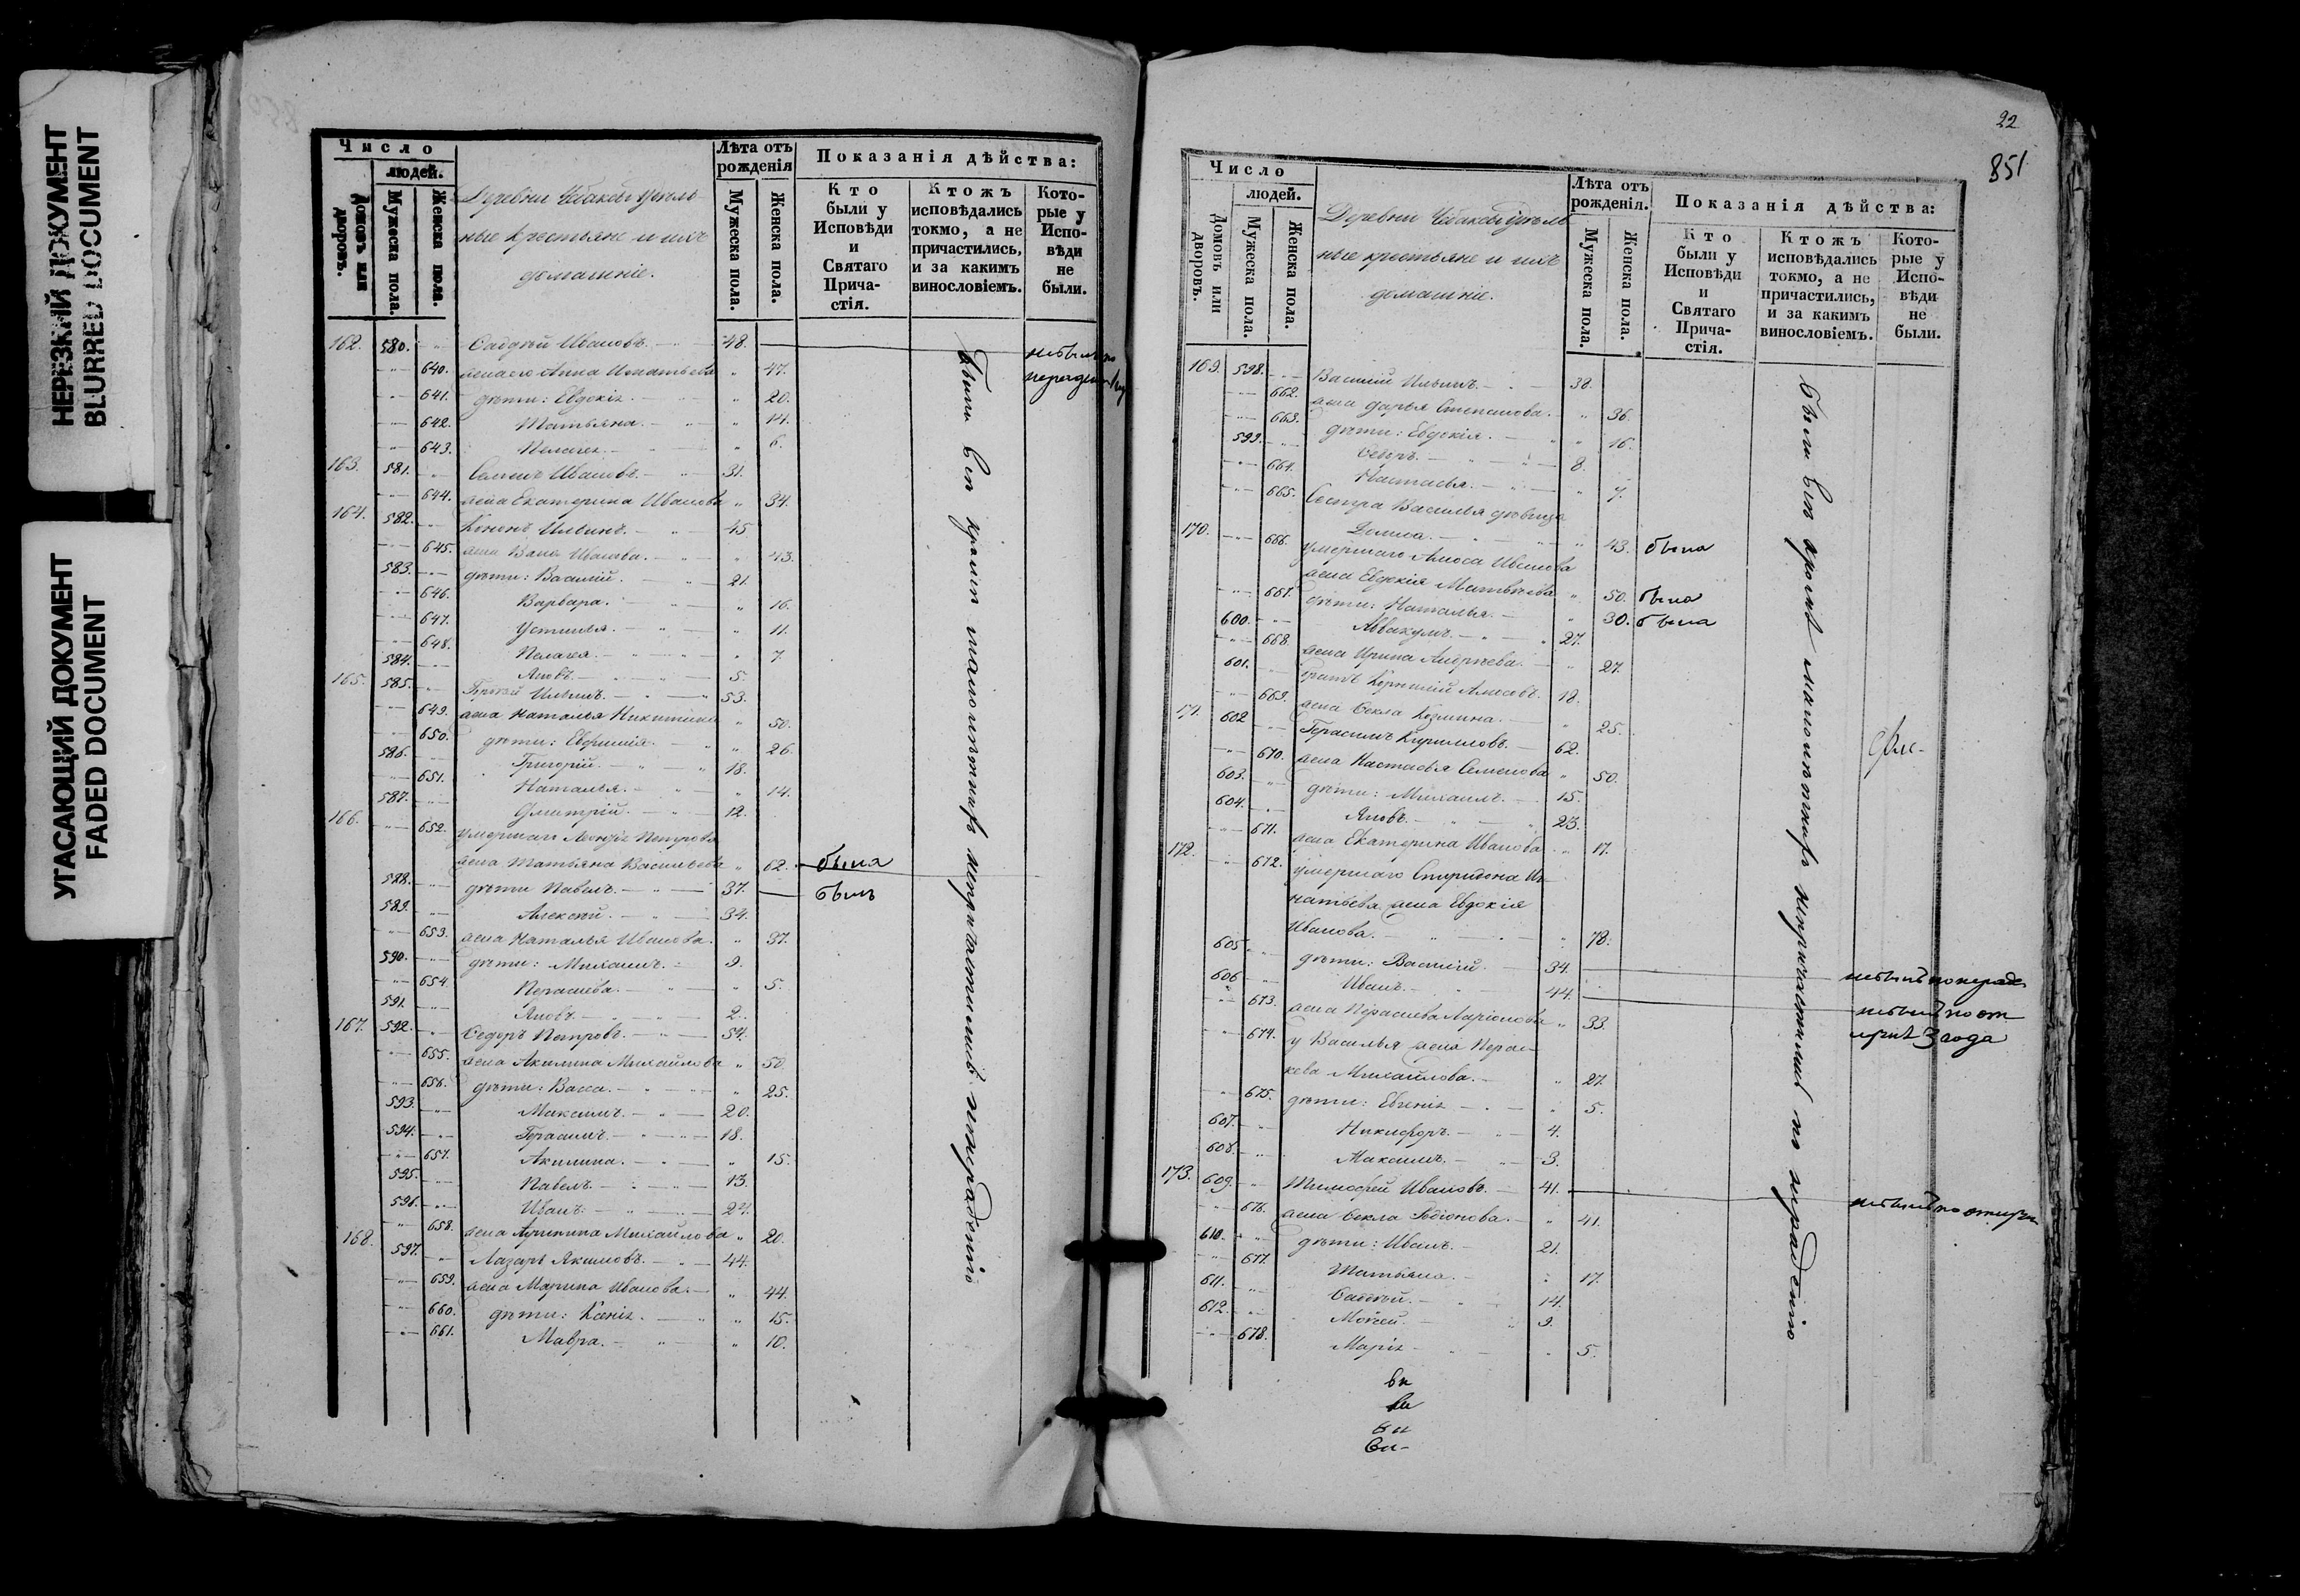 НЕРЕЗКИЙ ДОКУМЕНТ
BLURRED DOCUMENT
УГАСАЮЩИЙ ДОКУМЕНТ
FADED DOCUMENT
Число
людей.
Домовъ или дворовъ.
Мужеска пола.
Женска пола.
Деревни Чебаковы удѣль-
ные крестьяне и ихъ
домашніе.
Лѣта отъ рожденія
Мужеска пола.
Женска пола.
Показанія дѣйства:
Кто были у Исповѣди и Святаго Прича-стія.
Ктожъ исповѣдались токмо, а не причастились, и за какимъ винословіемъ.
Кото-рые у Испо-вѣди не были.
162. 580. Ѳаддей Ивановъ. 48.
640. жена его Анна Игнатьева 47.
641. дѣти: Евдокія. 20.
642. Татьяна. 14.
643. Пелагея. 6.
163. 581. Ивановъ. 31.
644. жена Екатерина Иванова 34.
164. 582. Кононъ Ильинъ. 45
645. жена Иванова. 43.
583. дѣти: Василій. 21.
646. Варвара. 16.
647. Устинья. 11.
648. Пелагея. 7.
584. Яковъ. 5.
165. 585. Ильинъ. 53.
649. жена Наталья Никитина 50.
650. дѣти: Евфимія. 26.
586. Григорій. 18.
651. Наталья. 14.
587. Дмитрій. 12.
166. 652. умершаго Петрова
жена Татьяна Васильева 62. была
588. дѣти Павелъ. 37. былъ
589. Алексѣй. 34.
653. жена Наталья Иванова. 37.
590. дѣти: Михаилъ. 9.
654. Параскева. 5.
591. Яковъ. 2.
167. 592. Ѳедоръ Петровъ. 54.
655. жена Акилина Михайлова 50.
656. дѣти: Васса. 25.
593. Максимъ. 20.
594. Герасимъ. 18.
657. Акилина. 15.
595. Павелъ. 13.
596. Иванъ.
658. жена Михайлова 20.
168. 597. Лазарь Якимовъ. 44.
659. жена Марина Иванова. 44.
660. дѣти: Ксенія. 15.
661. Мавра. 10.
Были Всѣ кромѣ малолѣтнихъ непричастились по нерадѣнію
22
851
Число
людей.
Домовъ или дворовъ.
Мужеска пола.
Женска пола.
Деревни Чебаковы удѣль-
ные крестьяне и ихъ
домашніе.
Лѣта отъ рожденія.
Мужеска пола.
Женска пола.
Показанія дѣйства:
Кто были у Исповѣди и Святаго Прича-стія.
Ктожъ исповѣдались токмо, а не причастились, и за какимъ винословіемъ.
Кото-рые у Испо-вѣди не были.
169. 598. Василій Ильинъ. 38.
662. жена Дарья Степанова. 36.
663. дѣти: Евдокія. 16.
599. Ѳедоръ. 8.
664. Настасья. 7.
665. Сестра Василья дѣвица
43. была
170. 666. умершаго Амоса Иванова
жена Евдокія Матвѣева 50. была
667. дѣти: Наталья. 30. была
600. Аввакумъ. 27.
668. жена Ирина Андреева. 27.
601. братъ Корнилій Амосовъ. 18.
669. жена Ѳекла Козмина. 25.
171. 602 Герасимъ Кириловъ. 62.
670. жена Настасья Семенова 50.
603. дѣти: Михаилъ. 15.
604. Яковъ. 23.
671. жена Екатерина Иванова. 17.
172. 672. умершаго Спиридона Иг-
натьева жена Евдокія
Иванова. 78.
605 дѣти: Василій. 34.
606 Иванъ. 44.
673. жена Параскева Ларіонова 33.
674. у Василья жена Парас-
кева Михайлова. 27.
675. дѣти: Евгенія 5.
607. Никифоръ. 4.
608. Максимъ. 3.
173. 609. Тимофей Ивановъ. 41.
676. жена Ѳекла Родіонова. 41.
610. дѣти: Иванъ. 21.
677. Татьяна. 17.
611. Ѳаддей. 14.
612. Моѵсей. 9.
678. Марія 5.
Были Всѣ кромѣ малолѣтнихъ непричастились по нерадѣнію